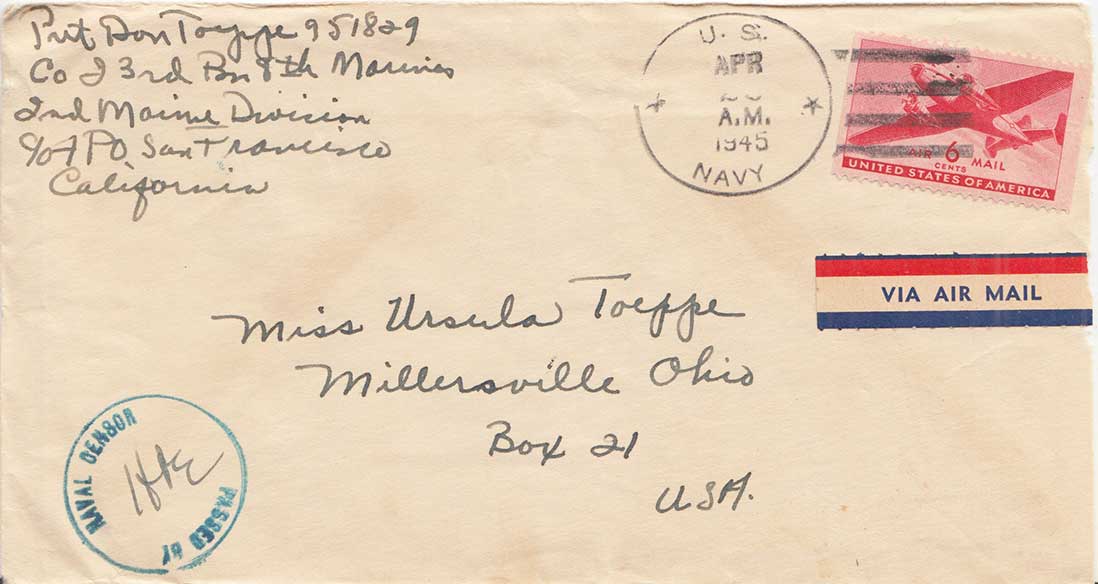 Pvt Don Toeppe 951829
Co I 3rd Bn 8th Marines
2nd Marine Division
c/o FPO, San Francisco
California
U. S.
APR
A.M.
1945
NAVY
AIR 6 MAIL
CENTS
UNITED STATES OF AMERICA
VIA AIR MAIL
Miss Ursula Toeppe
Millersville Ohio
Box 21
USA.
PASSED BY
NAVAL CENSOR